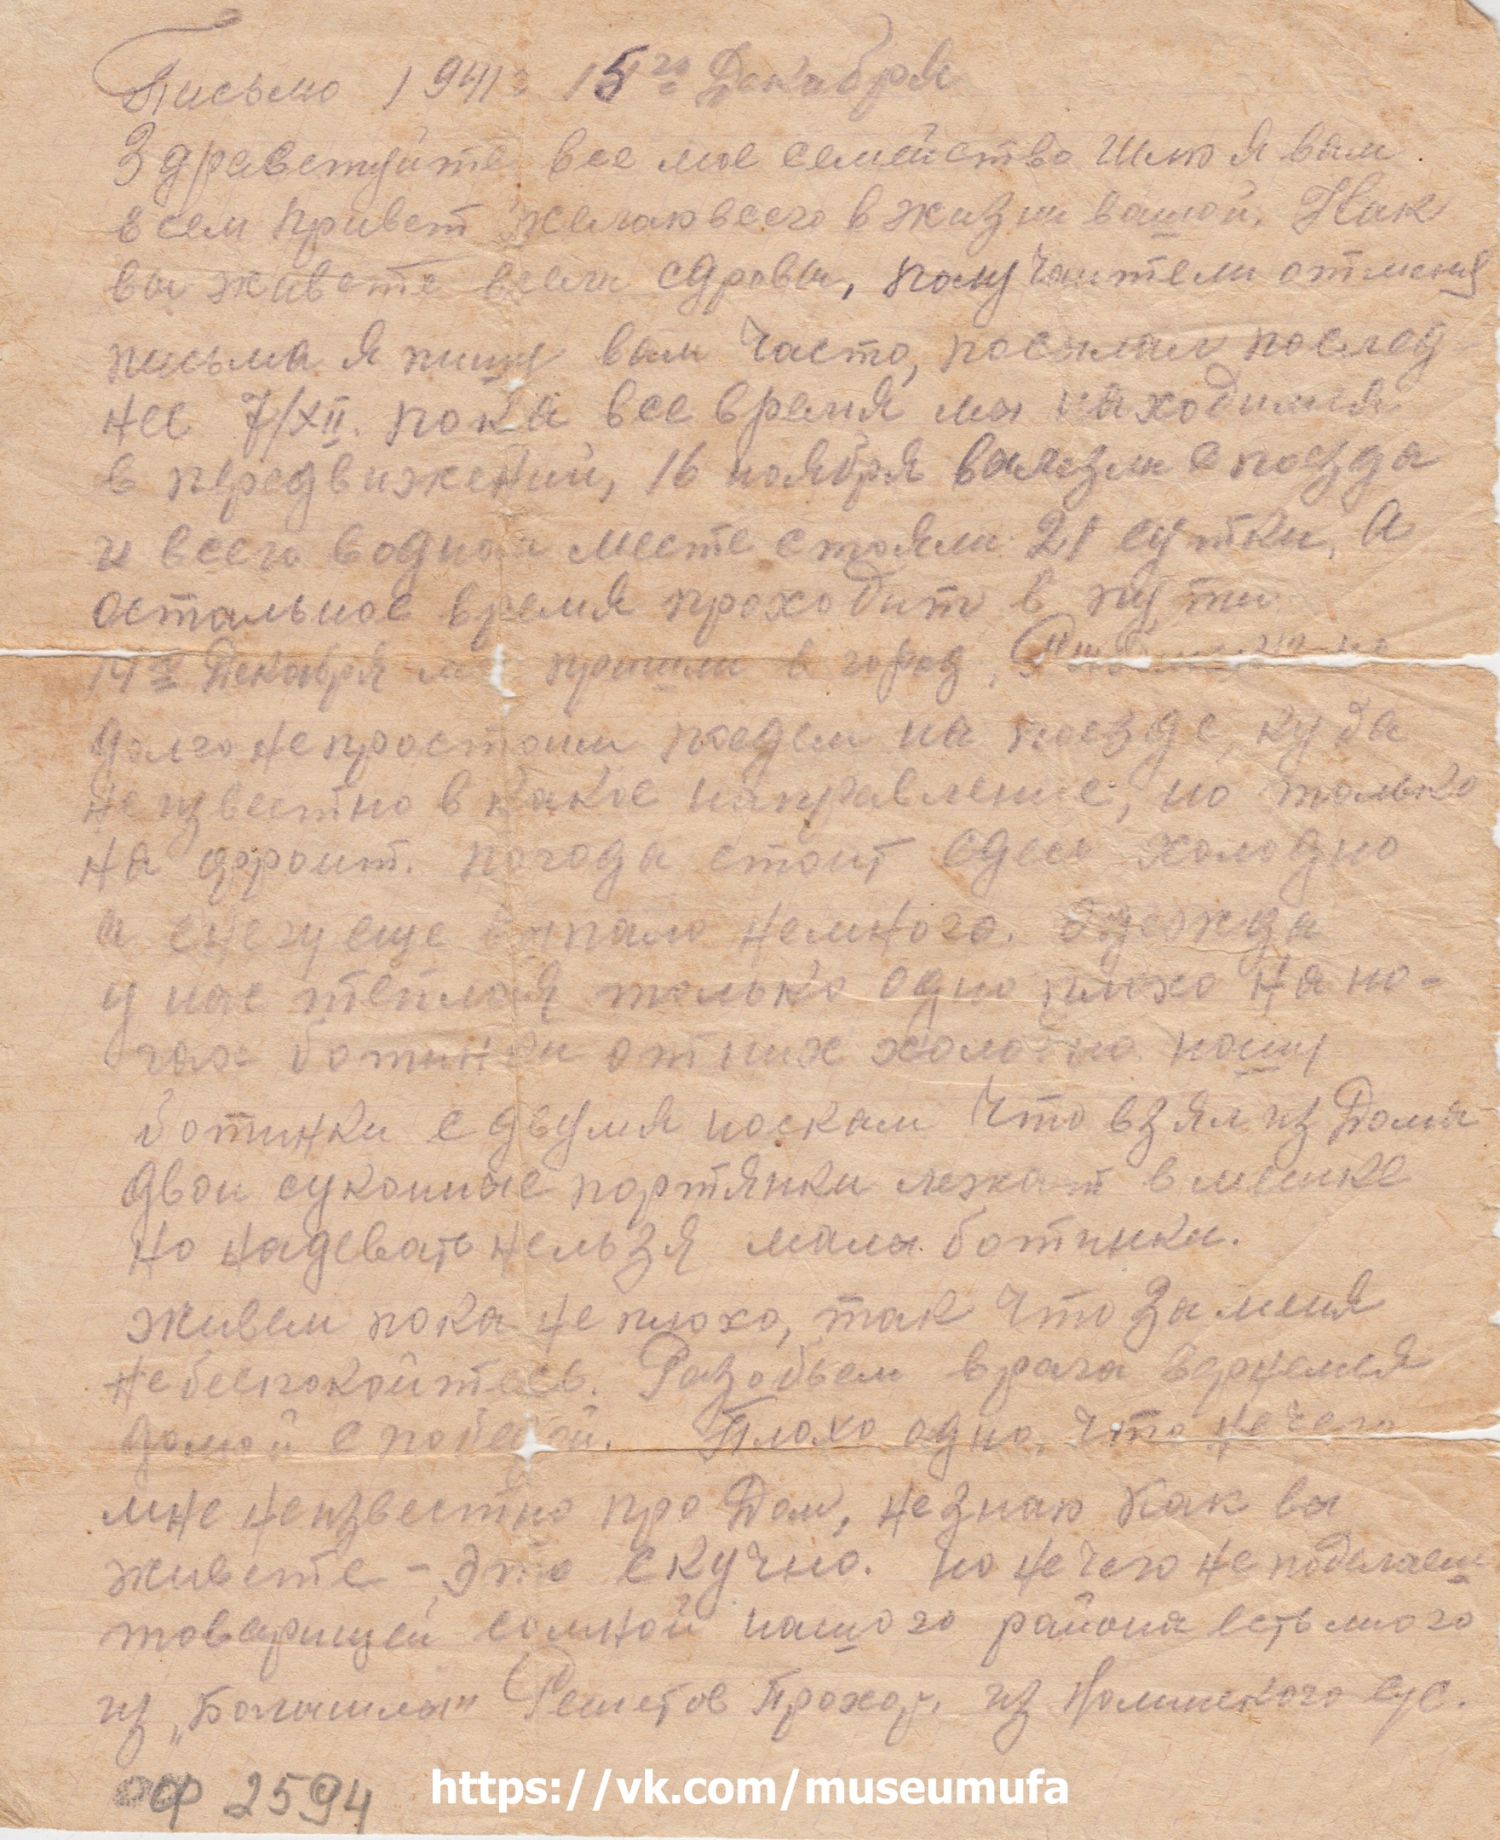 Письмо 1941 г 15го Декабря
Здравствуйте все мое семейство шлю я вам
всем привет желаю всего в жизни вашой. Как
вы живете все ли сдровы, получаите ли от меня
письма я пишу вам часто, посылал послед
нее 7/XII. пока все время мы находимся
в передвижений, 16 ноября вылезли с поезда
и всего водном месте стояли 21 сутки, А
остальное время проходит в пути
14го Декабря мы пришли в город,
долго не простоим поедем на поезде, куда
не известно в какое направление, но только
на фронт. погода стоит сдесь холодно
и снегу еще выпало немного. Одежда
у нас тёплая только одно плохо на но-
гах ботинки от них холодно ношу
ботинки с двумя носкам что взял из Дома
двои суконные портянки лежат в мешке
но надевать нельзя малы ботинки.
живем пока не плохо, так что за меня
не беспокойтесь. Разобьем врага вернемся
домой с победой. Плохо одно, что нечего
мне неизвестно про Дом, не знаю как вы
живете - это скучно. но нечего не поделаеш
товарищей сомной нашого района есть много
из Решетов Прохор, из с/с.
оф 2594
https://vk.com/museumufa